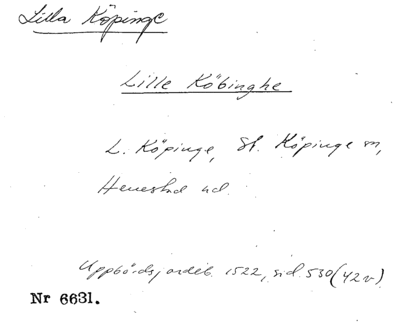 Lilla Köpinge
Lille Köbinghe
L. Köpinge, St. Köpinge sn,
Herrestad hd.
Uppbördsjordeb. 1522, sid. 530 (42v)
Nr 6631.